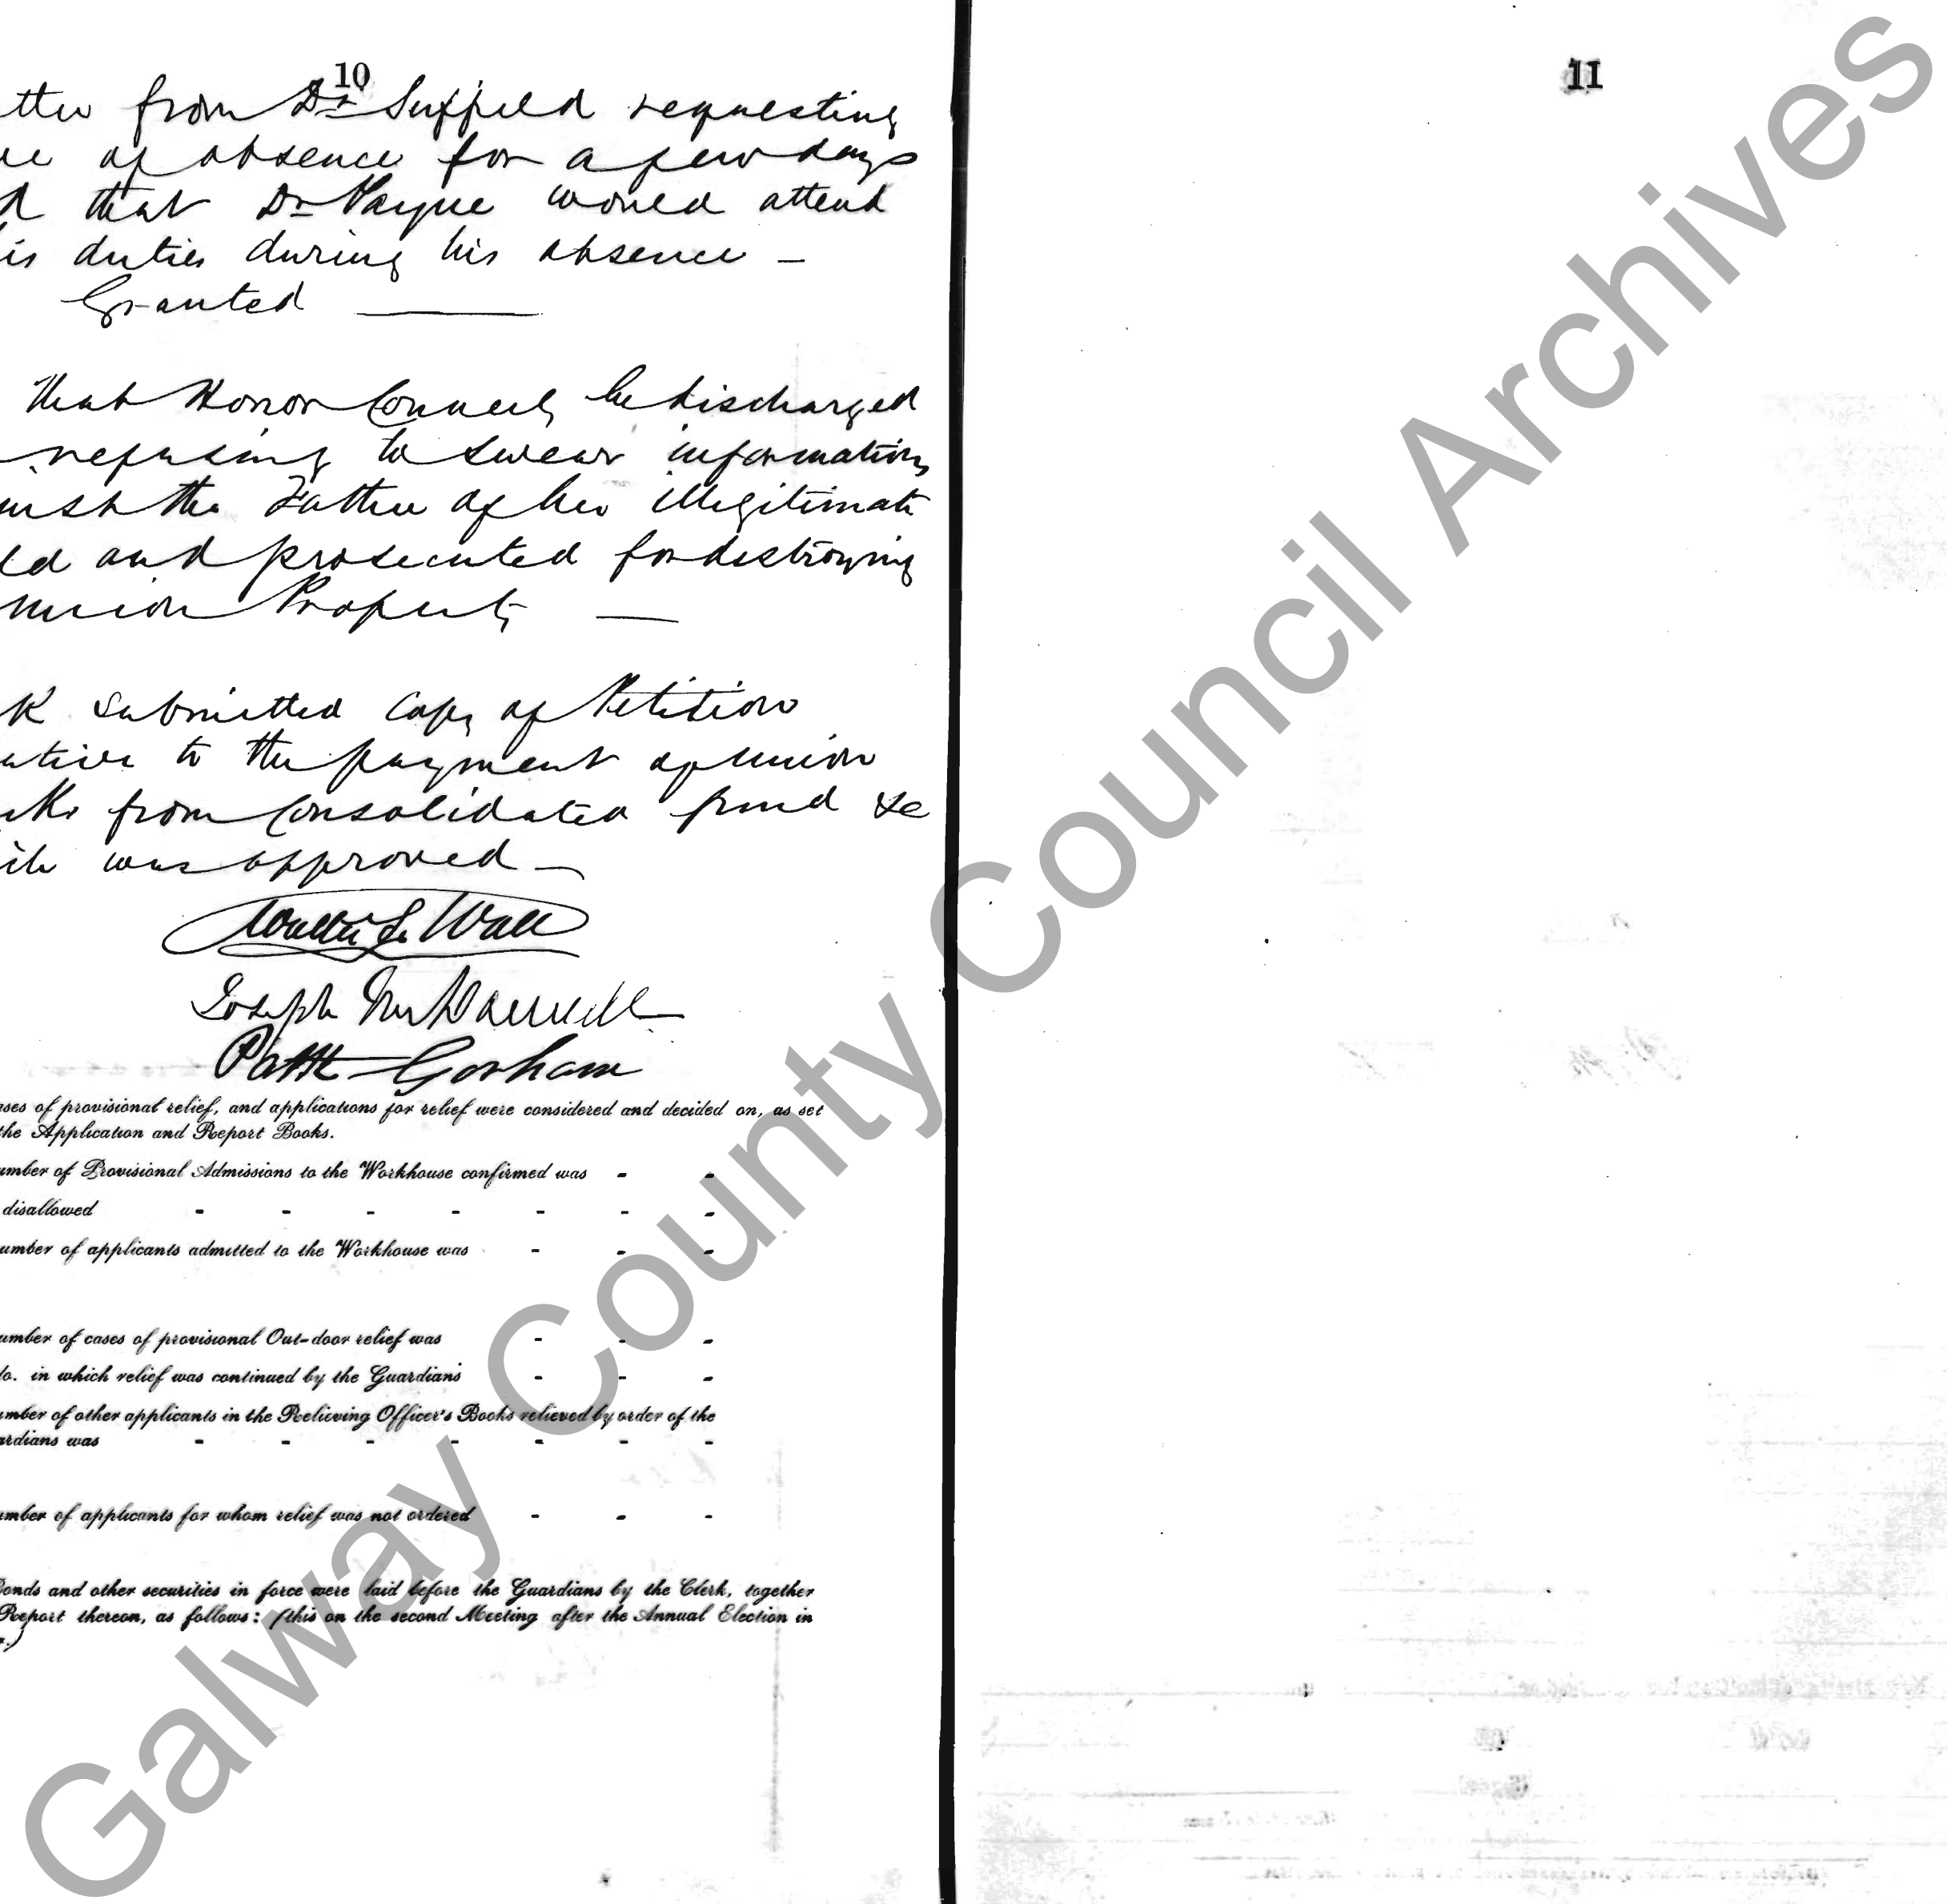 10
tter from Dr Suffield requesting
ve of absence for a few days
d that Dr Payne would attend
is duties during his absence –
Granted ———
That Honor Connely be discharged
refusing to swear informations
inst the Father of her illegitimate
ld and prosecuted for destroying
union Property —
k submitted Copy of Petition
ative to the payment of union
from Consolidated fund &c
was approved —
Wall
Joseph
Pattk Gorham
ases of provisional relief, and applications for relief were considered and decided on, as set
the Application and Report Books.
umber of Provisional Admissions to the Workhouse confirmed was - -
disallowed - - - - - - -
umber of applicants admitted to the Workhouse was - - -
umber of cases of provisional Out-door relief was - - -
do. in which relief was continued by the Guardians - - -
umber of other applicants in the Relieving Officer's Books relieved by order of the
ardians was - - - - - - -
umber of applicants for whom relief was not ordered - - -
Bonds and other securities in force were laid before the Guardians by the Clerk, together
Report thereon, as follows: (this on the second Meeting after the Annual Election in
r.)
11
Galway County Council Archives